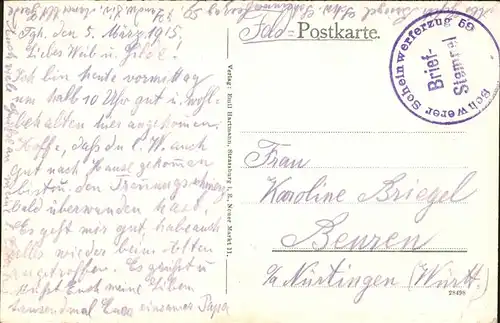 Feld=Postkarte.
Schwerer Scheinwerferzug 59
Brief-
Stempel
Tgh. den 5. März 1915!
Liebes Weib u.
Ich bin heute vormittag
um halb 10 Uhr gut u. wohl-
behalten hier angekommen.
Hoffe, daß du l. W. auch
gut nach Hause gekommen
bist u. den Trennungsschmerz
bald überwunden hast,
Es geht mir gut, habe auch
alles wieder beim besten
angetroffen. Es grüßt u.
küßt Euch meine Lieben
tausendmal Euer Papa
Verlag: Emil Hartmann, Strassburg i. E., Neuer Markt 11.
Frau
Karoline Briegel
Beuren
b/a Nürtingen (Württ.)
28498